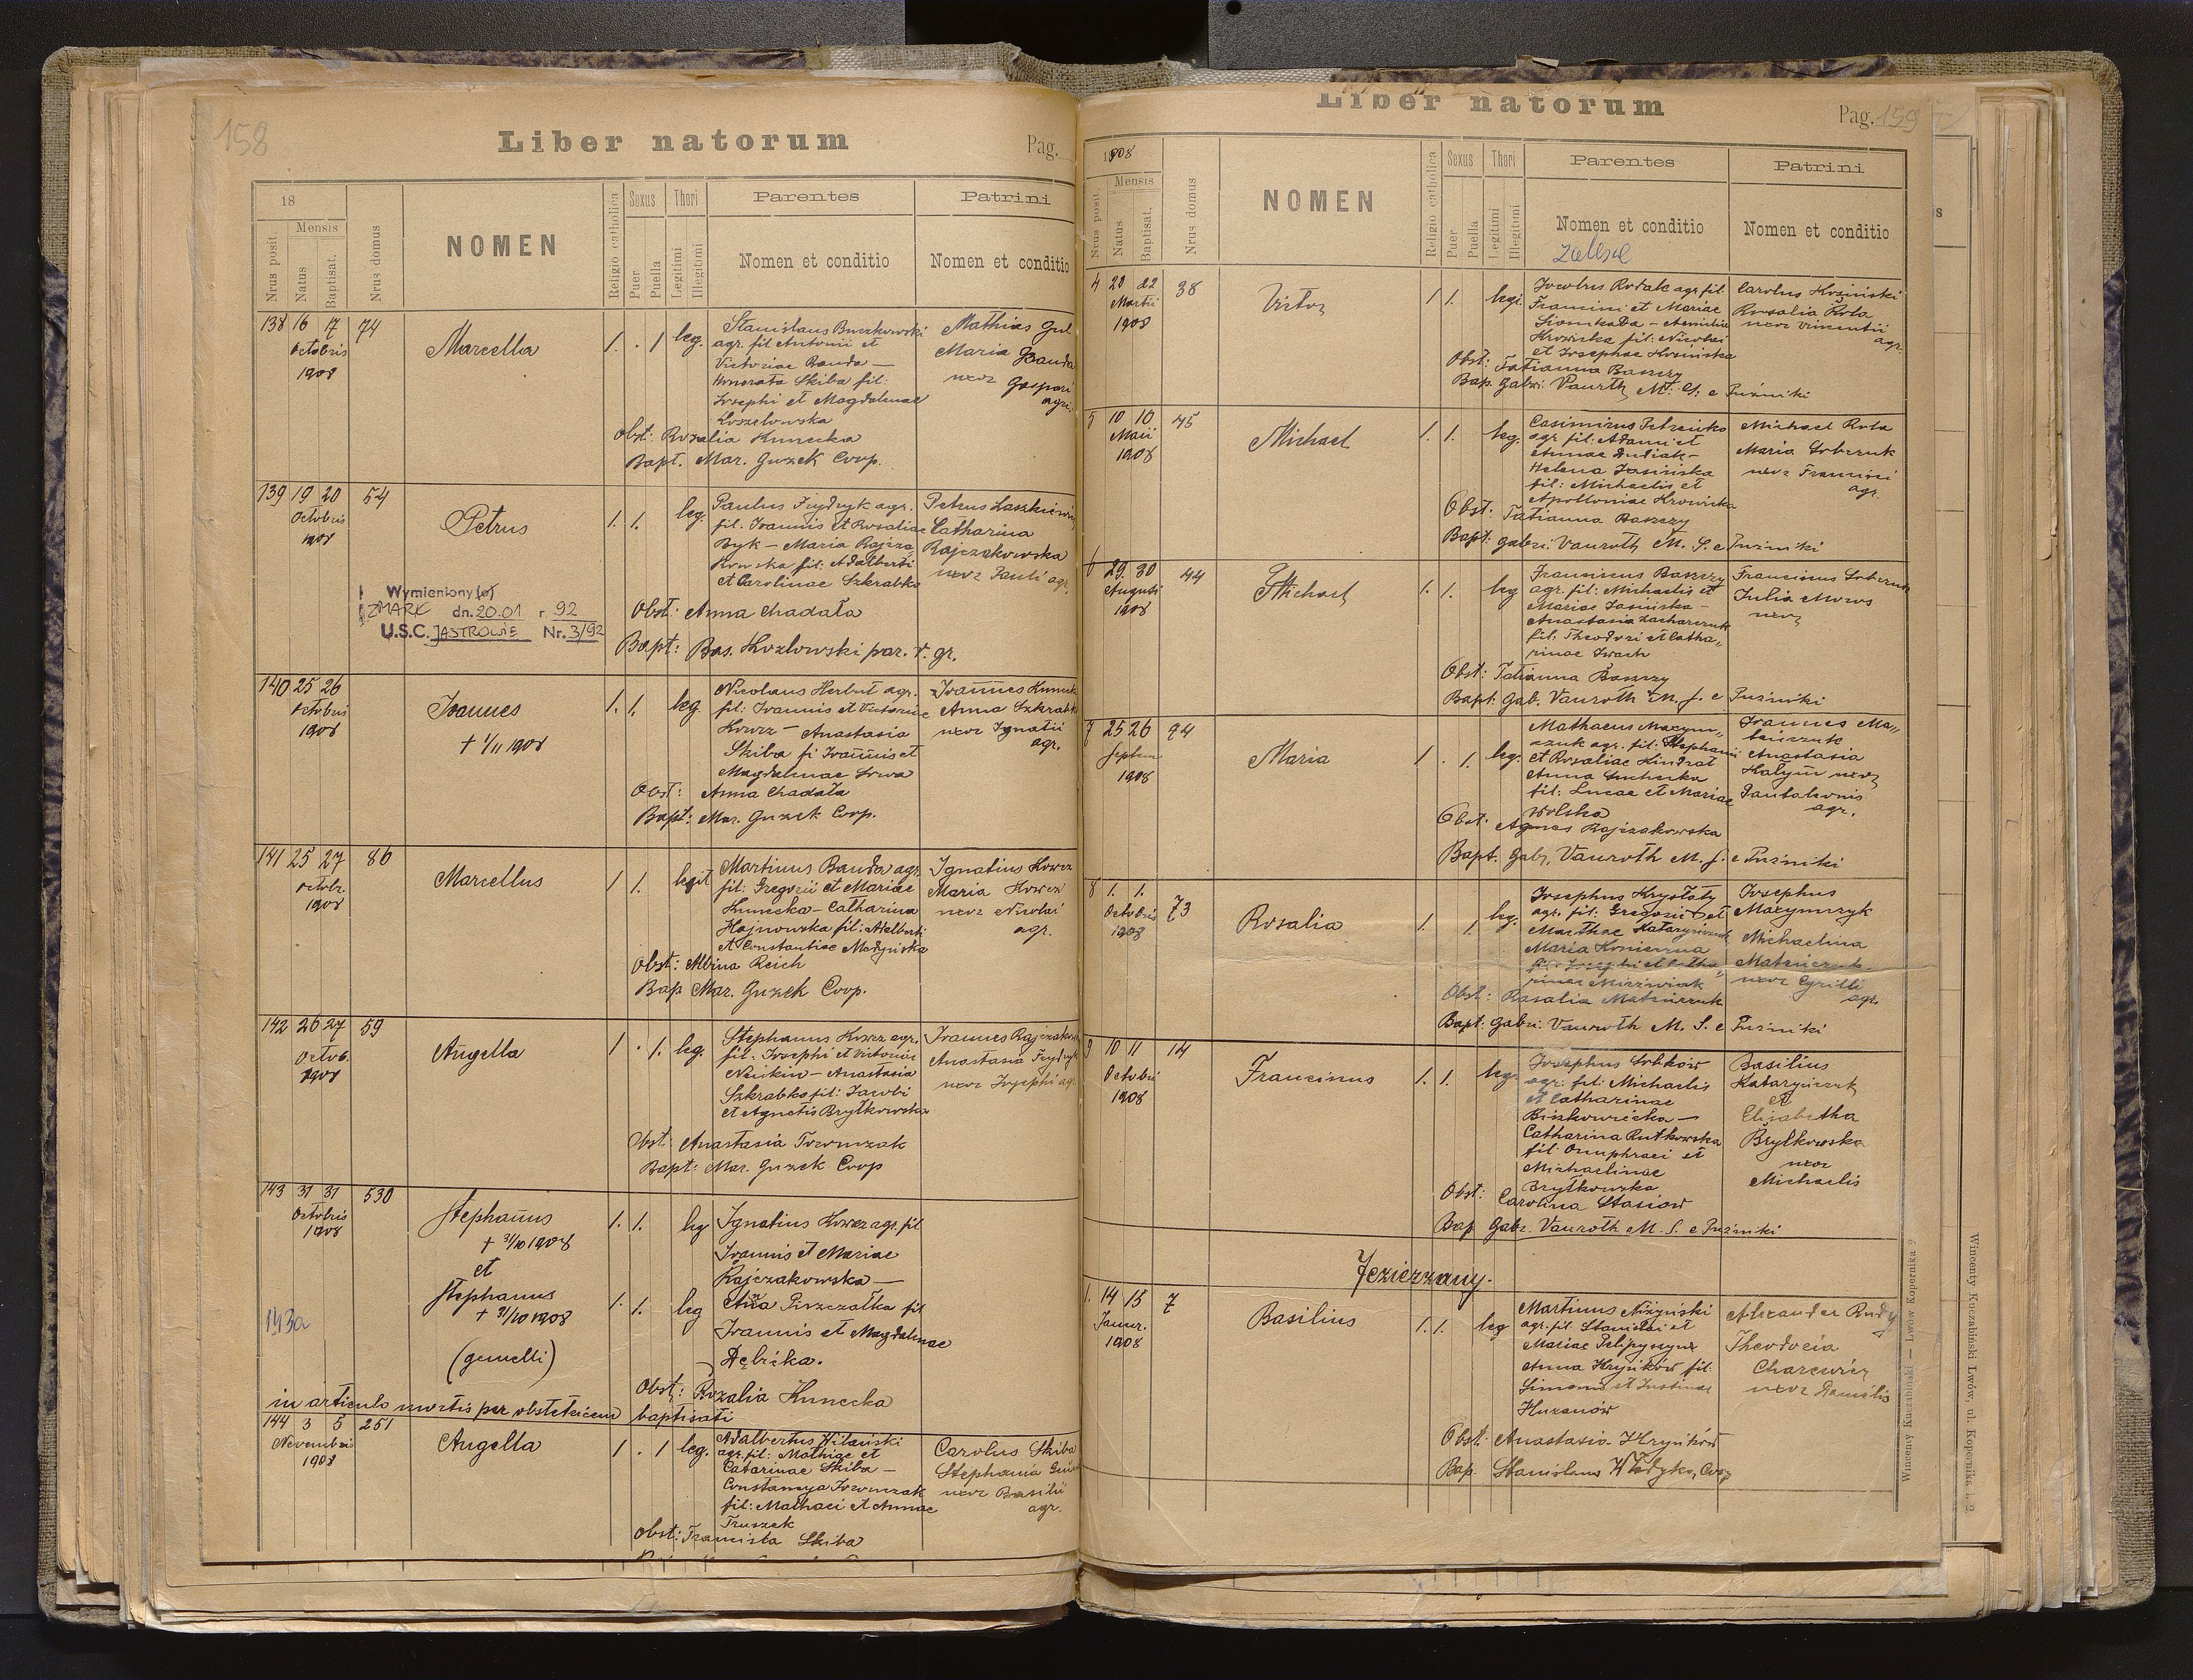 158
Liber natorum
Pag.
18
Mensis
Nrus posit.
Natus
Baptisat.
Nrus domus
NOMEN
Religio catholica
Sexus
Puer
Puella
Thori
Legitimi
Illegitimi
Parentes
Nomen et conditio
Patrini
Nomen et conditio
138 16 17 74
Octobris
1908
Marcella
1. . 1 leg.
Stanislaus Buczkowski
agr. fil Antonii et
Victoriae Banda —
Honorata Skiba fil:
Josephi et Magdalenae
Koszelowska
Mathias Gul
Maria Banda
uxor Gaspari
agr.
Obst: Rozalia Kunecka
Bapt. Mar. Guzek Coop.
139 19 20 54
Octobris
1908
Petrus
1. 1. leg.
Paulus Frydryk agr.
fil. Joannis et Rosaliae
Byk — Maria Rajcza
kowska fil: Adalberti
et Carolinae Szkrabka
Petrus Laszkiewicz
Catharina
Rajczakowska
uxor Pauli agr.
Wymieniony(a)
ZMARŁ dn. 20.01 r. 92
U.S.C. JASTROWIE Nr. 3/92
Obst: Anna Chadała
Bapt: Bas. Kozlowski par. r. gr.
140 25 26
Octobris
1908
Joannes
+ 1/11 1908
1. 1. leg
Nicolaus Herbut agr.
fil: Joannis et Victoriae
Kowcz — Anastasia
Skiba fi Joannis et
Magdalenae Sowa
Joannes Kuneck
Anna Szkrabka
uxor Ignatii
agr.
Obst: Anna Chadała
Bapt: Mar. Guzek Coop.
141 25 27 86
Octobr.
1908
Marcellus
1 1. legit
Martinus Banda agr
fil: Gregorii et Mariae
Kunecka — Catharina
Hajnowska fil: Adalberti
et Constantiae Medyńska
Ignatius Kowcz
Maria Kowcz
uxor Nicolai
agr.
Obst: Albina Reich
Bap Mar. Guzek Coop.
142 26 27 59
Octob.
1908
Angella
1 . 1. leg.
Stephanus Kowcz agr.
fil: Josephi et Victoriae
Neiskin — Anastasia
Szkrabka fil: Jacobi
et Agnetis Brytkowska
Joannes Rajczakow
Anastasia Frydryk
uxor Josephi agr.
Obst: Anastasia Towmzak
Bapt: Mar. Guzek Coop
143 31 31 530
Octobris
1908
Stephanus
+ 31/10 1908
et
Stephanus
+ 31/10 1908
(gemelli)
143a
1. 1. leg
1. 1. leg
Ignatius Kowcz agr. fil
Joannis et Mariae
Rajczakowska —
Anna Piszczatka fil
Joannis et Magdalenae
Dębicka.
Obst: Rozalia Kunecka
in articulo mortis per obstetricem baptisati
144 3 5 251
Novembris
1908
Angella
1 . 1 leg.
Adalbertus Hilański
agr. fil: Mathiae et
Catarinae Skiba —
Constancya Towmzak
fil: Mathaei et Annae
Truszek
Carolus Skiba
Stephania
uxor Basilii
agr.
Obst: Franciska Skiba
Liber natorum
Pag. 159
1908
Mensis
Nrus posit.
Natus
Baptisat.
Nrus domus
NOMEN
Religio catholica
Sexus
Puer
Puella
Thori
Legitimi
Illegitimi
Parentes
Nomen et conditio
Zalesie
Patrini
Nomen et conditio
4 20 22 38
Martii
1908
Victor
1 1. legi.
Jacobus Rodak agr fil:
Francisci et Mariae
Siomkaba — Aemilia
Krowicka fil: Nicolai
et Josephae Kosińska
Carolus Kosiński
Rosalia Rola
uxor Vincentii
agr.
Obst: Tatianna Baszczy
Bap. Gabri. Vauroth M. S. e Puźniki
5 10 10 45
Maii
1908
Michael
1. 1. leg.
Casimirus Petrenko
agr fil: Adami et
Annae Dudiak —
Helena Jasińska
fil: Michaelis et
Apolloniae Krowicka
Michael Rola
Maria Sobczuk
uxor Francisci
agr.
Obst: Tatianna Baszczy
Bapt: Gabri. Vauroth M. S. e Puźniki
6 29. 30 44
Augusti
1908
Michael
1. 1. leg
Franciscus Baszczy
agr. fil: Michaelis et
Mariae Jasińska —
Anastasia Zacharczuk
fil: Theodori et Catha„
rinae Iwach
Franciscus Sobczuk
Julia Moros
uxor
Obst: Tatianna Baszczy
Bapt: Gab. Vauroth M. S. e Puźniki
7 25 26 94
Septem
1908
Maria
1 . 1. leg.
Mathaeus Maxym„
czuk agr. fil: Stephani
et Rosaliae Kindrat
Anna Suchecka
fil: Lucae et Mariae
Wolska
Joannes Ma„
teńczuk
Anastasia
Hałym uxor
Pantaleonis
agr.
Obst: Agnes Rajczakowska
Bapt. Gabr. Vauroth M. S. e Puźniki
8 1. 1. 73
Octobris
1908
Rosalia
1. 1. leg.
Josephus Kryształy
agr. fil: Gregorii et
Marthae Katarynczuk
Maria Konieczna
fil: Josephi et Catha„
rinae Misziwiak
Josephus
Maxymczyk
Michaelina
Mateńczuk
uxor Cyrilli
agr.
Obst: Rasalia Mateńczuk
Bapt: Gabri. Vauroth M. S. e Puźniki
9 10 11 14
Octobris
1908
Franciscus
1. 1. leg.
Josephus Sobków
agr. fil: Michaelis
et Catharinae
Biszkowiecka —
Catharina Rutkowska
fil: Onuphraei et
Michaelinae
Brytkowska
Basilius
Katarynczuk
et
Elisabetha
Brytkowska
uxor
Michaelis
Obst: Carolina Stasiow
Bap Gabr. Vauroth M. S. e Puźniki
Jezierzany.
1. 14 15 7
Januar.
1908
Basilius
1. 1. leg
Martinus Niżyński
agr. fil. Stanislai et
Mariae Pelipyszyn
Anna Hryńków fil:
Simonis et Justinae
Huzanów
Alexander Rudy
Theodocia
Charewicz
uxor Danielis
Obst: Anastasia Hryńków
Bap. Stanislaus Władyka, Coop
Wincenty Kuczabiński — Lwów Kopernika 2
Wincenty Kuczabiński Lwów, ul. Kopernika l. 2